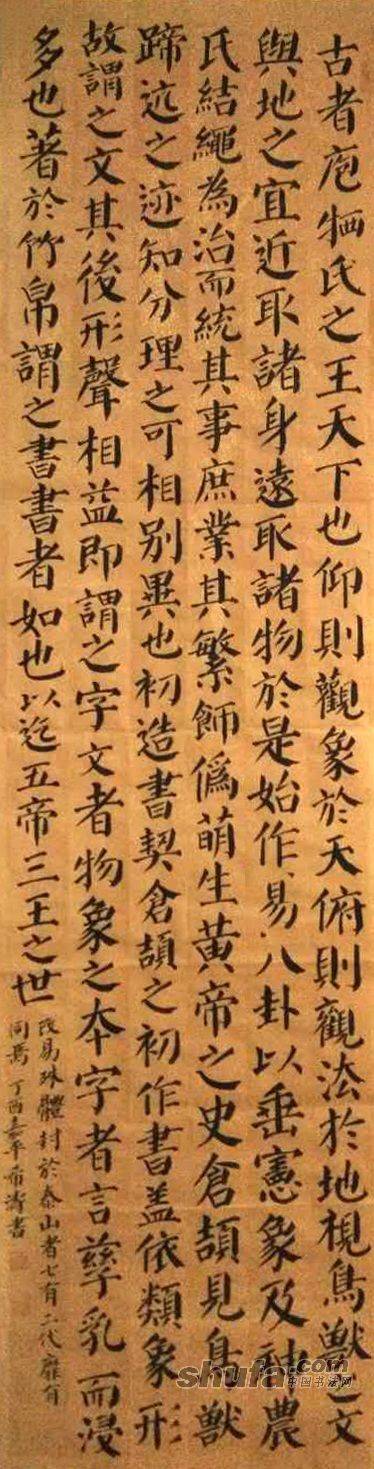 古者庖牺氏之王天下也仰則觀象於天俯則觀法於地視鳥獸之文
與地之宜近取諸身遠取諸物於是始作易八卦以垂憲象及神農
氏結繩為治而統其事庶業其繁飾僞萌生黃帝之史倉頡見鳥獸
蹄迒之迹知分理之可相別異也初造書契倉頡之初作書蓋依類象形
故謂之文其後形聲相益即謂之字文者物象之本字者言孳乳而浸
多也著於竹帛謂之書書者如也以迄五帝三王之世
改易殊體封於泰山者七有二代靡有
同焉 丁酉嘉平希濤書
shufa.com
中国书法网